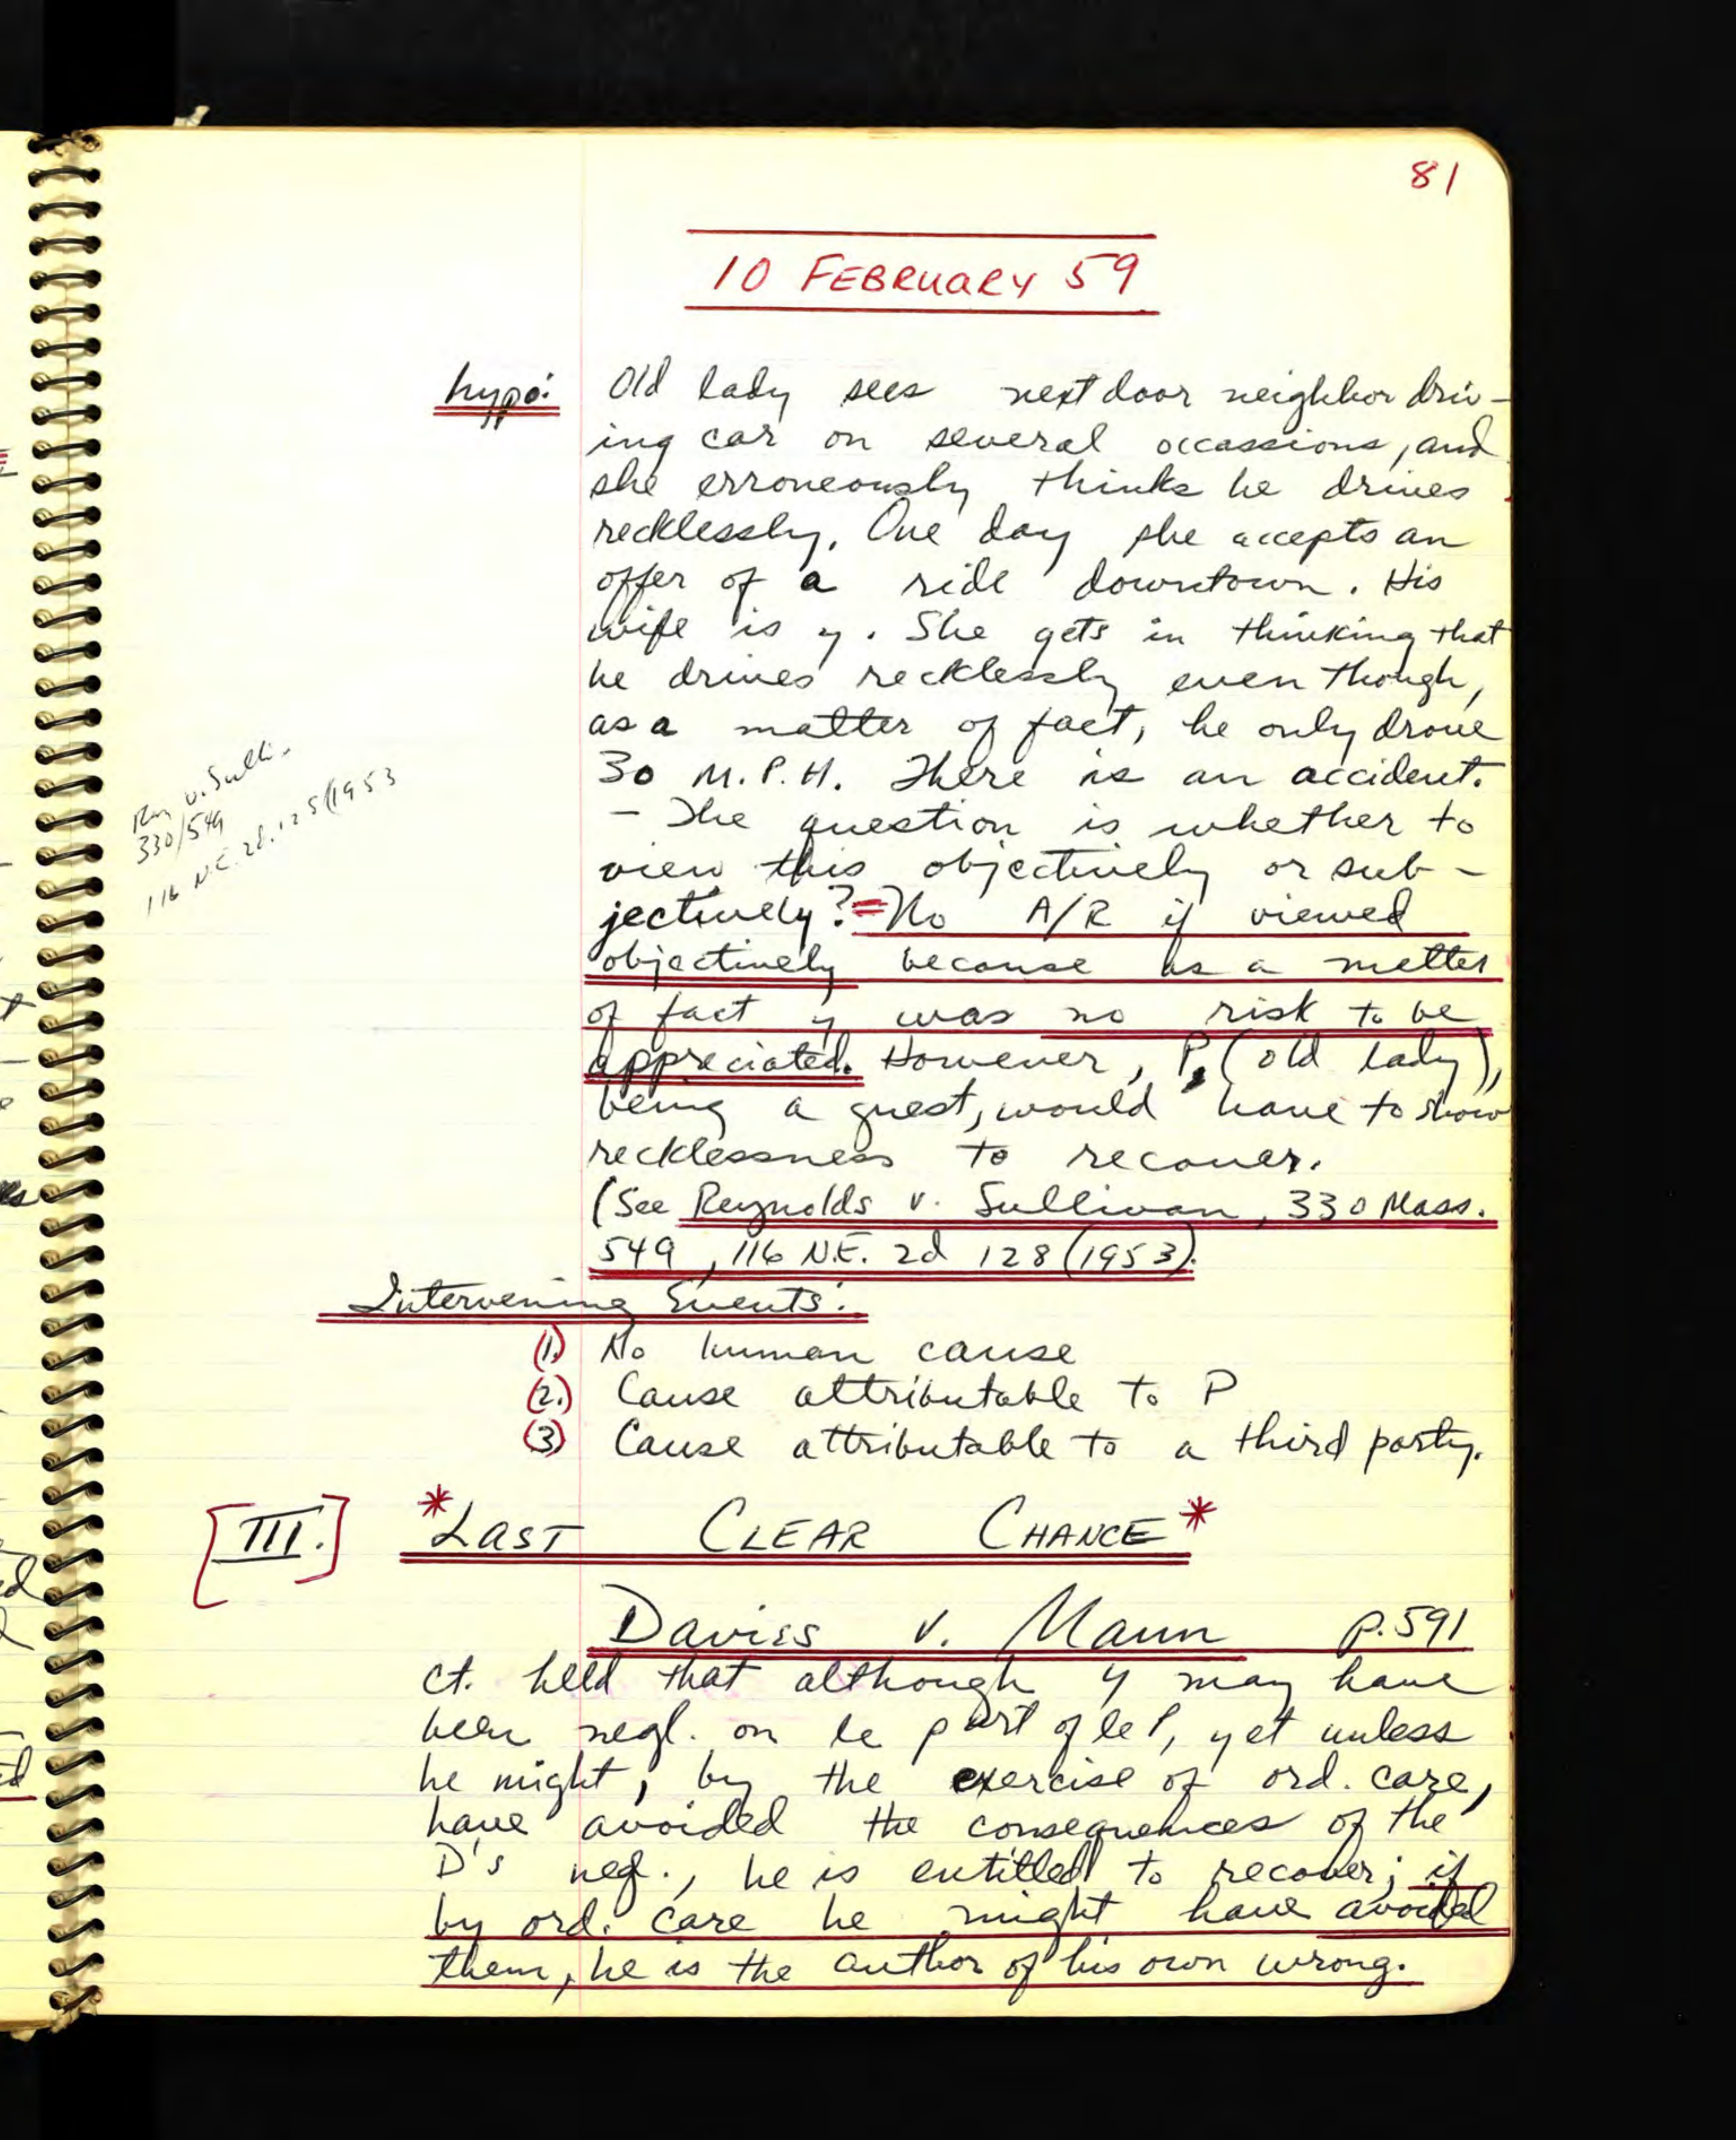 81
10 FEBRUARY 59
hypo: Old lady sees next door neighbor driv-
ing car on several occassions, and
she erroneously thinks he drives
recklessly. One day she accepts an
offer of a ride downtown. His
wife is y. She gets in thinking that
he drives recklessly even though,
as a matter of fact, he only drove
30 M.P.H. There is an accident.
- The question is whether to
view this objectively or sub-
jectively? = No A/R if viewed
objectively because as a matter
of fact y was no risk to be
appreciated. However, P, (old lady),
being a guest, would have to show
recklessness to recover.
(See Reynolds v. Sullivan, 330 Mass.
549, 116 N.E. 2d 128 (1953).
v. Sulli-
330/549
116 N.E. 2d. 125 (1953
Intervening Events:
(1.) No human cause
(2.) Cause attributable to P
(3) Cause attributable to a third party.
[III.] *LAST CLEAR CHANCE*
Davies v. Mann p.591
ct. held that although y may have
been negl. on le part of le P, yet unless
he might, by the exercise of ord. care,
have avoided the consequences of the
D's neg., he is entitled to recover; if
by ord. care he might have avoided
them, he is the author of his own wrong.